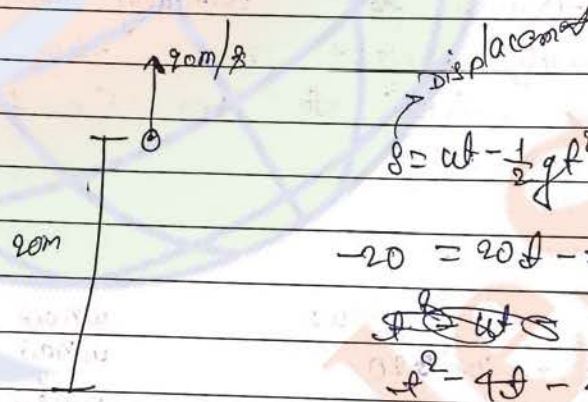 20m/s
Displacement
S = ut - 1/2 gt²
20m
-20 = 20t -
t² - 4t -